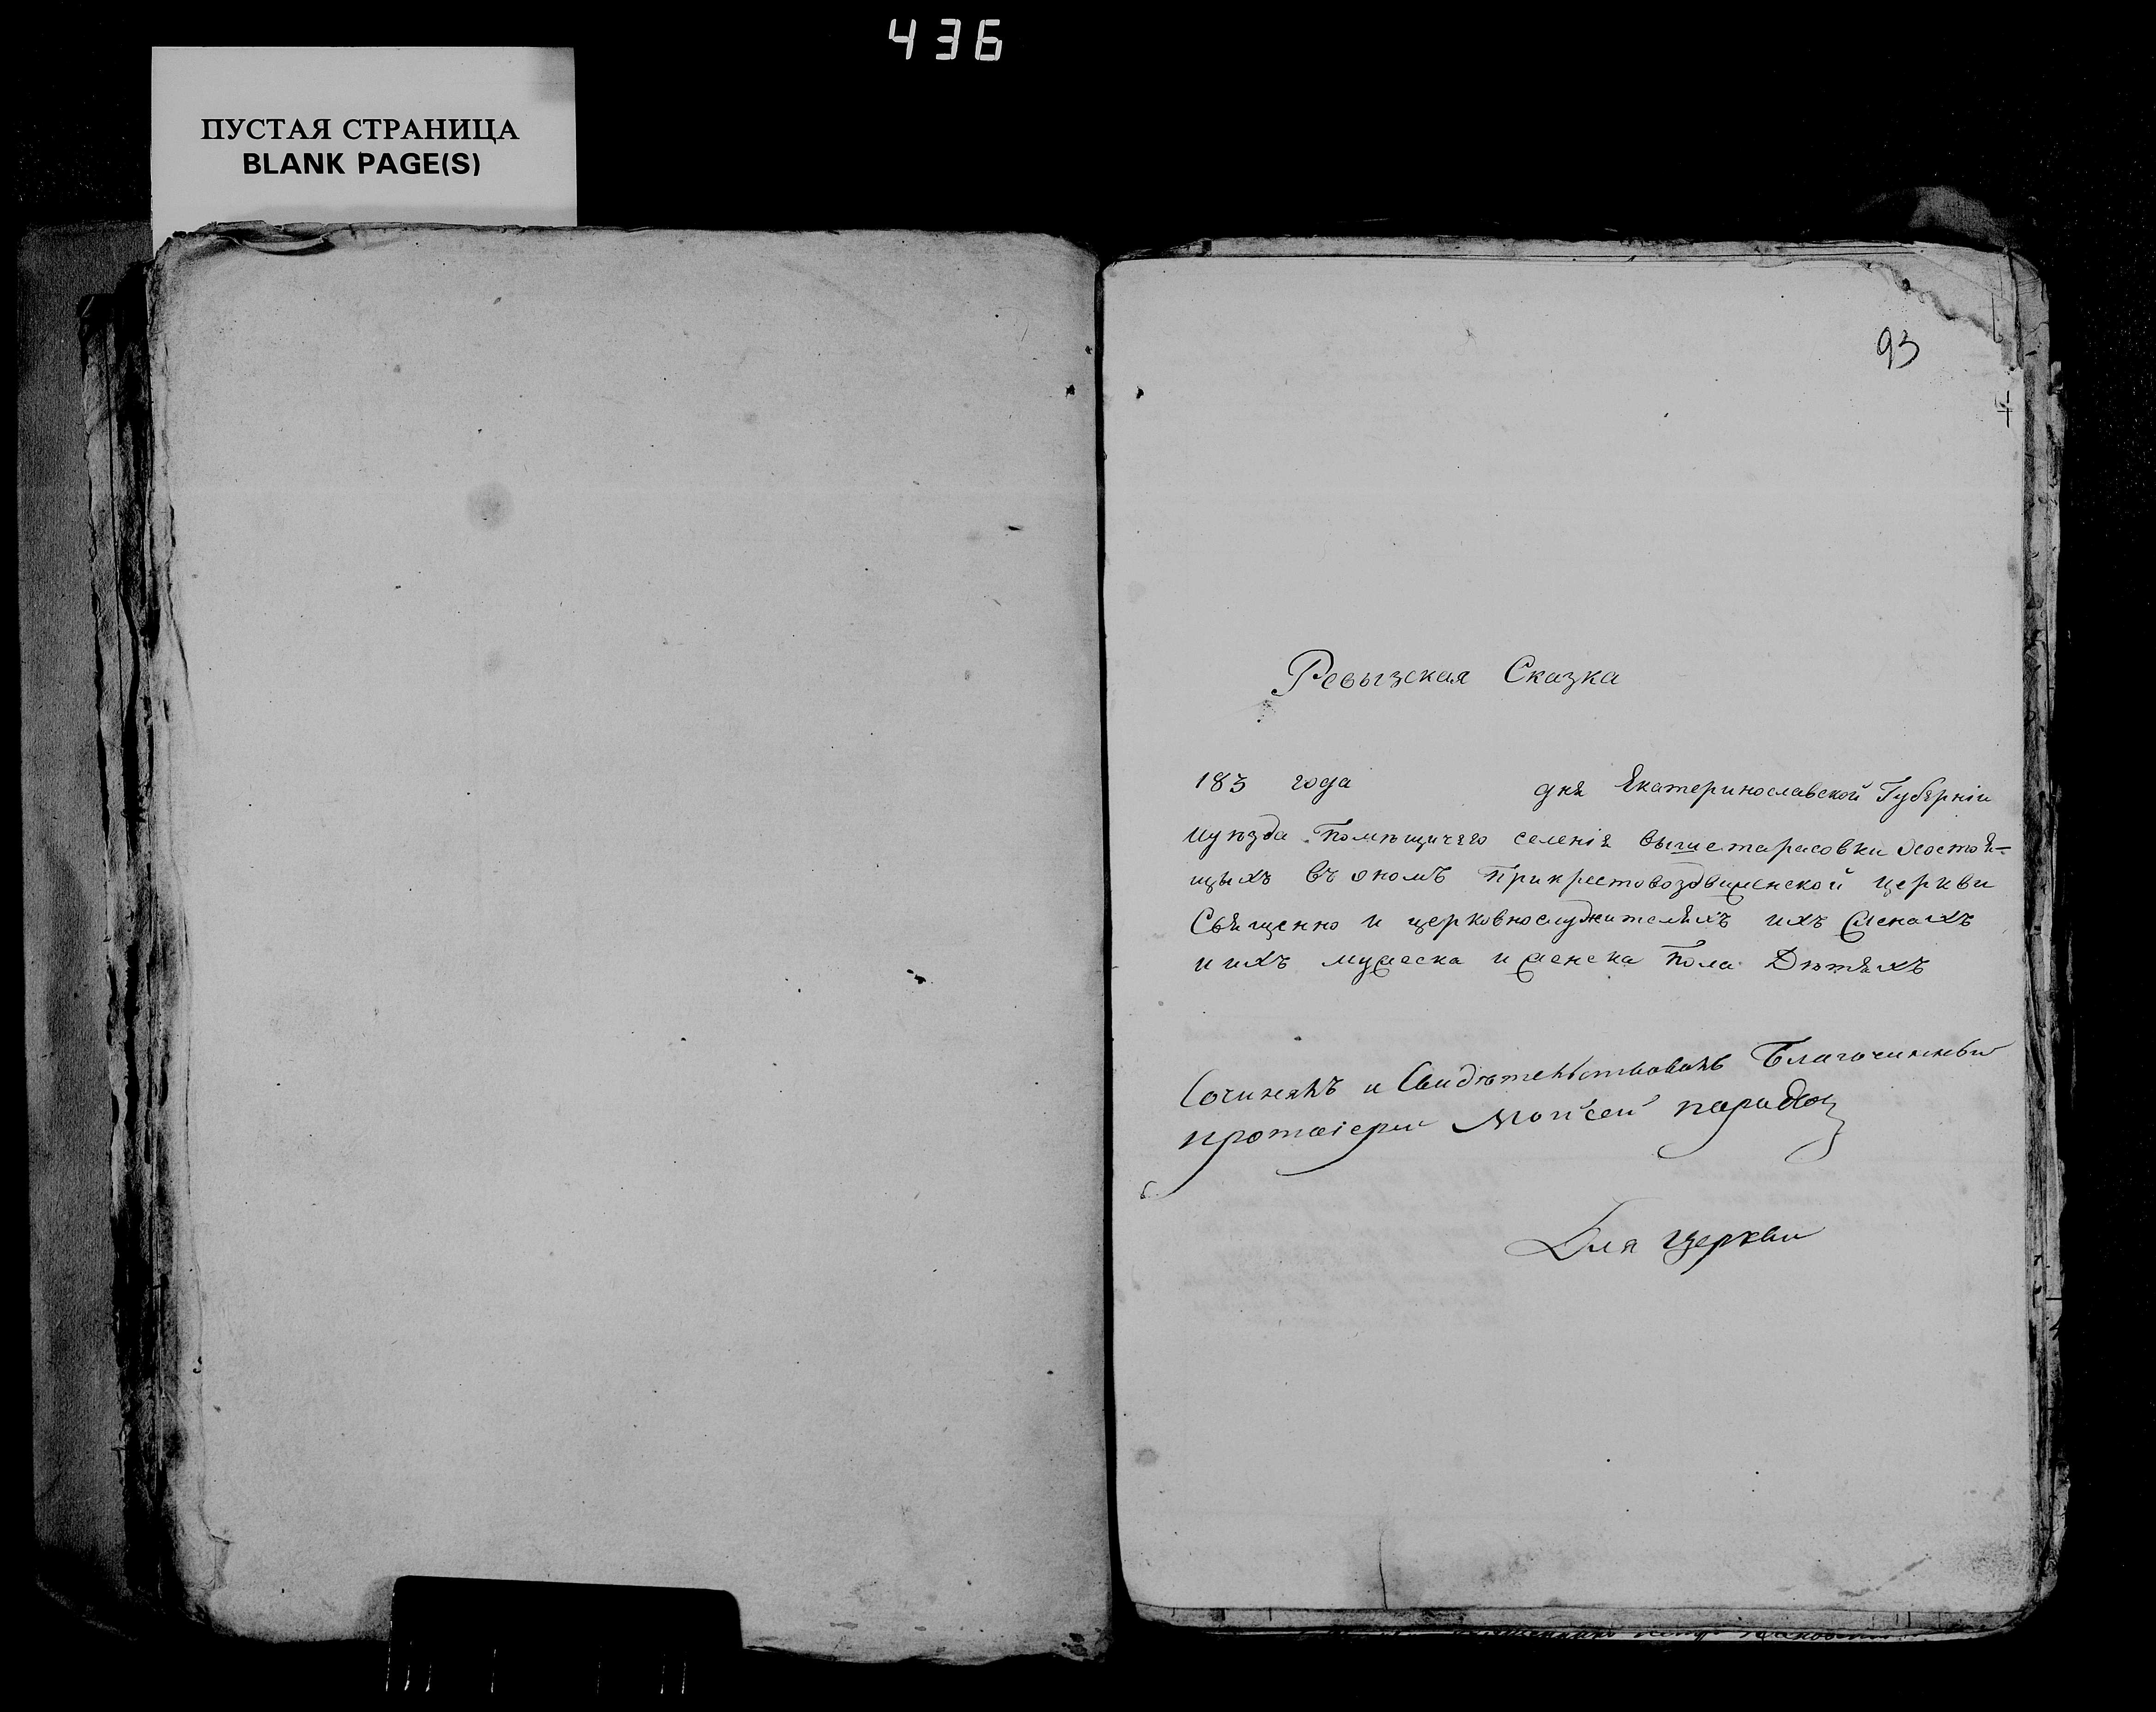 436
ПУСТАЯ СТРАНИЦА
BLANK PAGE(S)
93
Ревызская Сказка
183 года дня Екатеринославской Губерніи
иуѣзда Помѣщичего селенія вышетарасовки осостоя-
щыхъ въ ономъ прикрестовоздвиженской церкви
Священно и церковнослужителяхъ ихъ женахъ
и ихъ мужеска и женска Пола Дѣтяхъ
Сочинялъ и Свидѣтельствовалъ Благочинный
протоіерей Мойсей
Для церкви